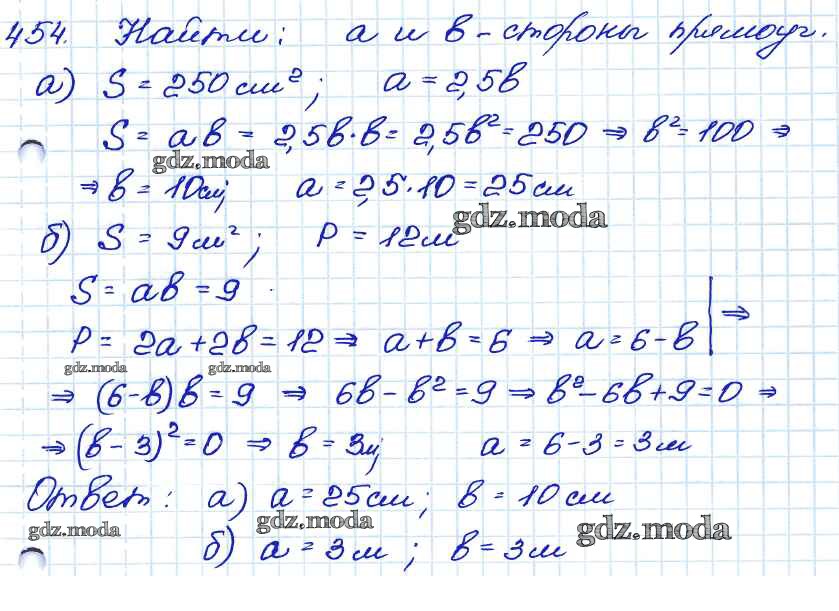 454. Найти: a и b - стороны прямоуг.
а) S = 250 см²; a = 2,5b
S = ab = 2,5b·b = 2,5b² = 250 ⇒ b² = 100 ⇒
gdz.moda
⇒ b = 10см; a = 2,5·10 = 25 см
gdz.moda
б) S = 9 м²; P = 12м
S = ab = 9
P = 2a + 2b = 12 ⇒ a + b = 6 ⇒ a = 6 - b | ⇒
gdz.moda gdz.moda
⇒ (6 - b) b = 9 ⇒ 6b - b² = 9 ⇒ b² - 6b + 9 = 0 ⇒
⇒ (b - 3)² = 0 ⇒ b = 3м; a = 6 - 3 = 3м
Ответ: а) a = 25 см; b = 10 см
gdz.moda gdz.moda gdz.moda
б) a = 3 м; b = 3 м